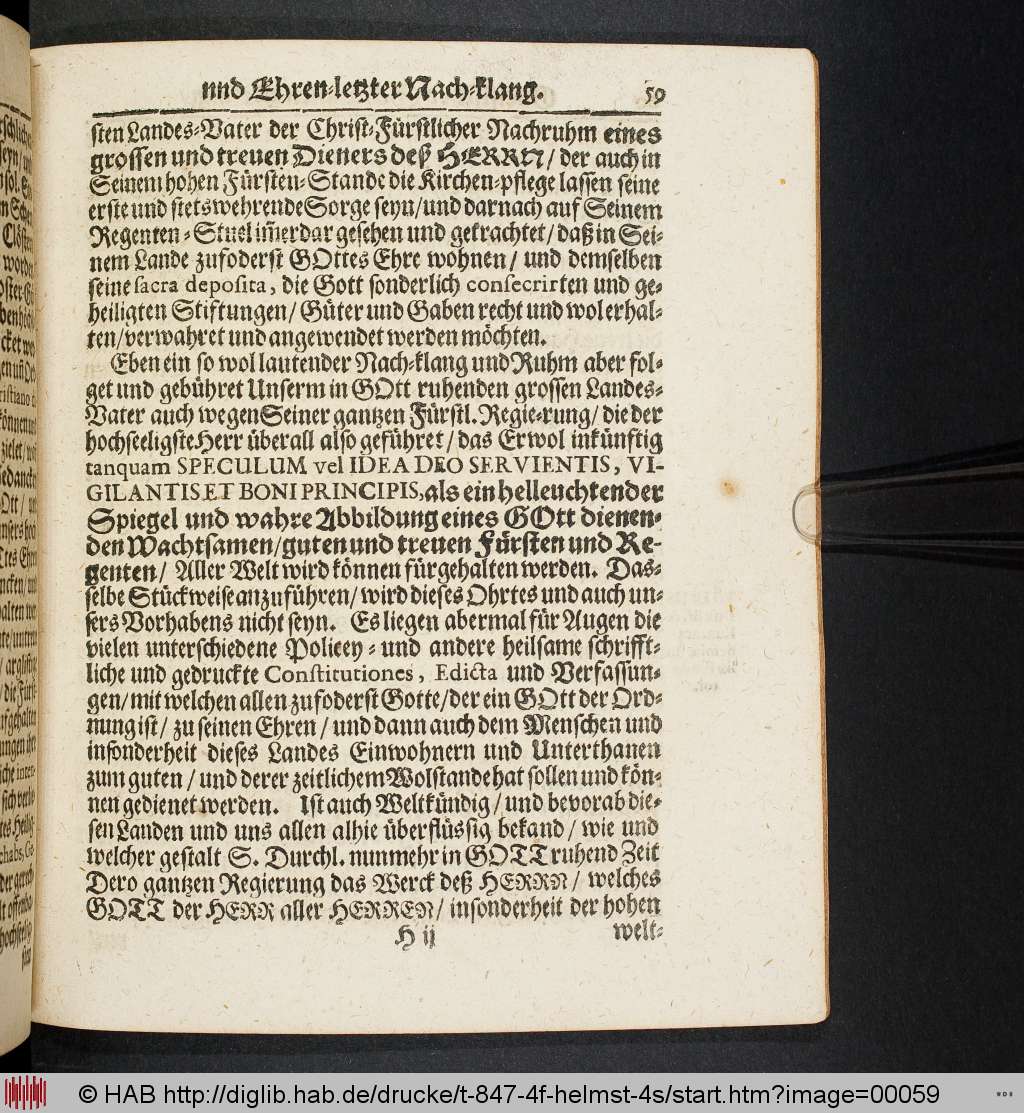 und Ehren-letzter Nach-klang. 59
sten Landes-Vater der Christ-Fürstlicher Nachruhm eines
grossen und treuen Dieners deß HERRN / der auch in
Seinem hohen Fürsten-Stande die Kirchen-pflege lassen seine
erste und stetswehrende Sorge seyn/und darnach auf Seinem
Regenten-Stuel im̃erdar gesehen und getrachtet/ daß in Sei-
nem Lande zufoderst GOttes Ehre wohnen / und demselben
seine sacra deposita, die Gott sonderlich consecrirten und ge-
heiligten Stiftungen/ Güter und Gaben recht und wol erhal-
ten/verwahret und angewendet werden möchten.
Eben ein so wol lautender Nach-klang und Ruhm aber fol-
get und gebühret Unserm in GOtt ruhenden grossen Landes-
Vater auch wegen Seiner gantzen Fürstl. Regie-rung/ die der
hochseeligste Herr überall also geführet / das Er wol inkünftig
tanquam SPECULUM vel IDEA DEO SERVIENTIS, VI-
GILANTIS ET BONI PRINCIPIS, als ein helleuchtender
Spiegel und wahre Abbildung eines GOtt dienen-
den Wachtsamen/guten und treuen Fürsten und Re-
genten/ Aller Welt wird können fürgehalten werden. Das-
selbe Stückweise anzuführen/ wird dieses Ohrtes und auch un-
sers Vorhabens nicht seyn. Es liegen abermal für Augen die
vielen unterschiedene Policey- und andere heilsame schrifft-
liche und gedruckte Constitutiones, Edicta und Verfassun-
gen/ mit welchen allen zufoderst Gotte/der ein GOtt der Ord-
nung ist / zu seinen Ehren / und dann auch dem Menschen und
insonderheit dieses Landes Einwohnern und Unterthanen
zum guten / und derer zeitlichem Wolstande hat sollen und kön-
nen gedienet werden. Ist auch Weltkündig / und bevorab die-
sen Landen und uns allen alhie überflüssig bekand / wie und
welcher gestalt S. Durchl. nunmehr in GOTT ruhend Zeit
Dero gantzen Regierung das Werck deß HERRN / welches
GOTT der HERR aller HERREN / insonderheit der hohen
H ij welt-
© HAB http://diglib.hab.de/drucke/t-847-4f-helmst-4s/start.htm?image=00059